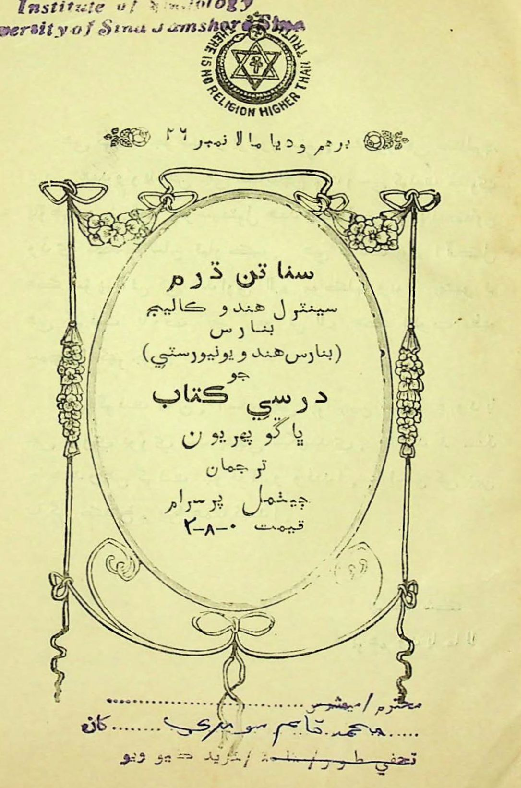 Institute of Sindhology
University of Sind Jamshoro Sind
THERE IS NO RELIGION HIGHER THAN TRUTH
برهم وديا مالا نمبر ٢٦
سناتن ڌرم
سينٽرل هندو ڪاليج
بنارس
(بنارس هندو يونيورسٽي)
جو
درسي ڪتاب
ڀاڱو پهريون
ترجمان
ڄيٺمل پرسرام
قيمت ٢-٨-٠
محترم / ميسرس
محمد قاسم سومري کان
تحفي طور / خريد ڪيو ويو